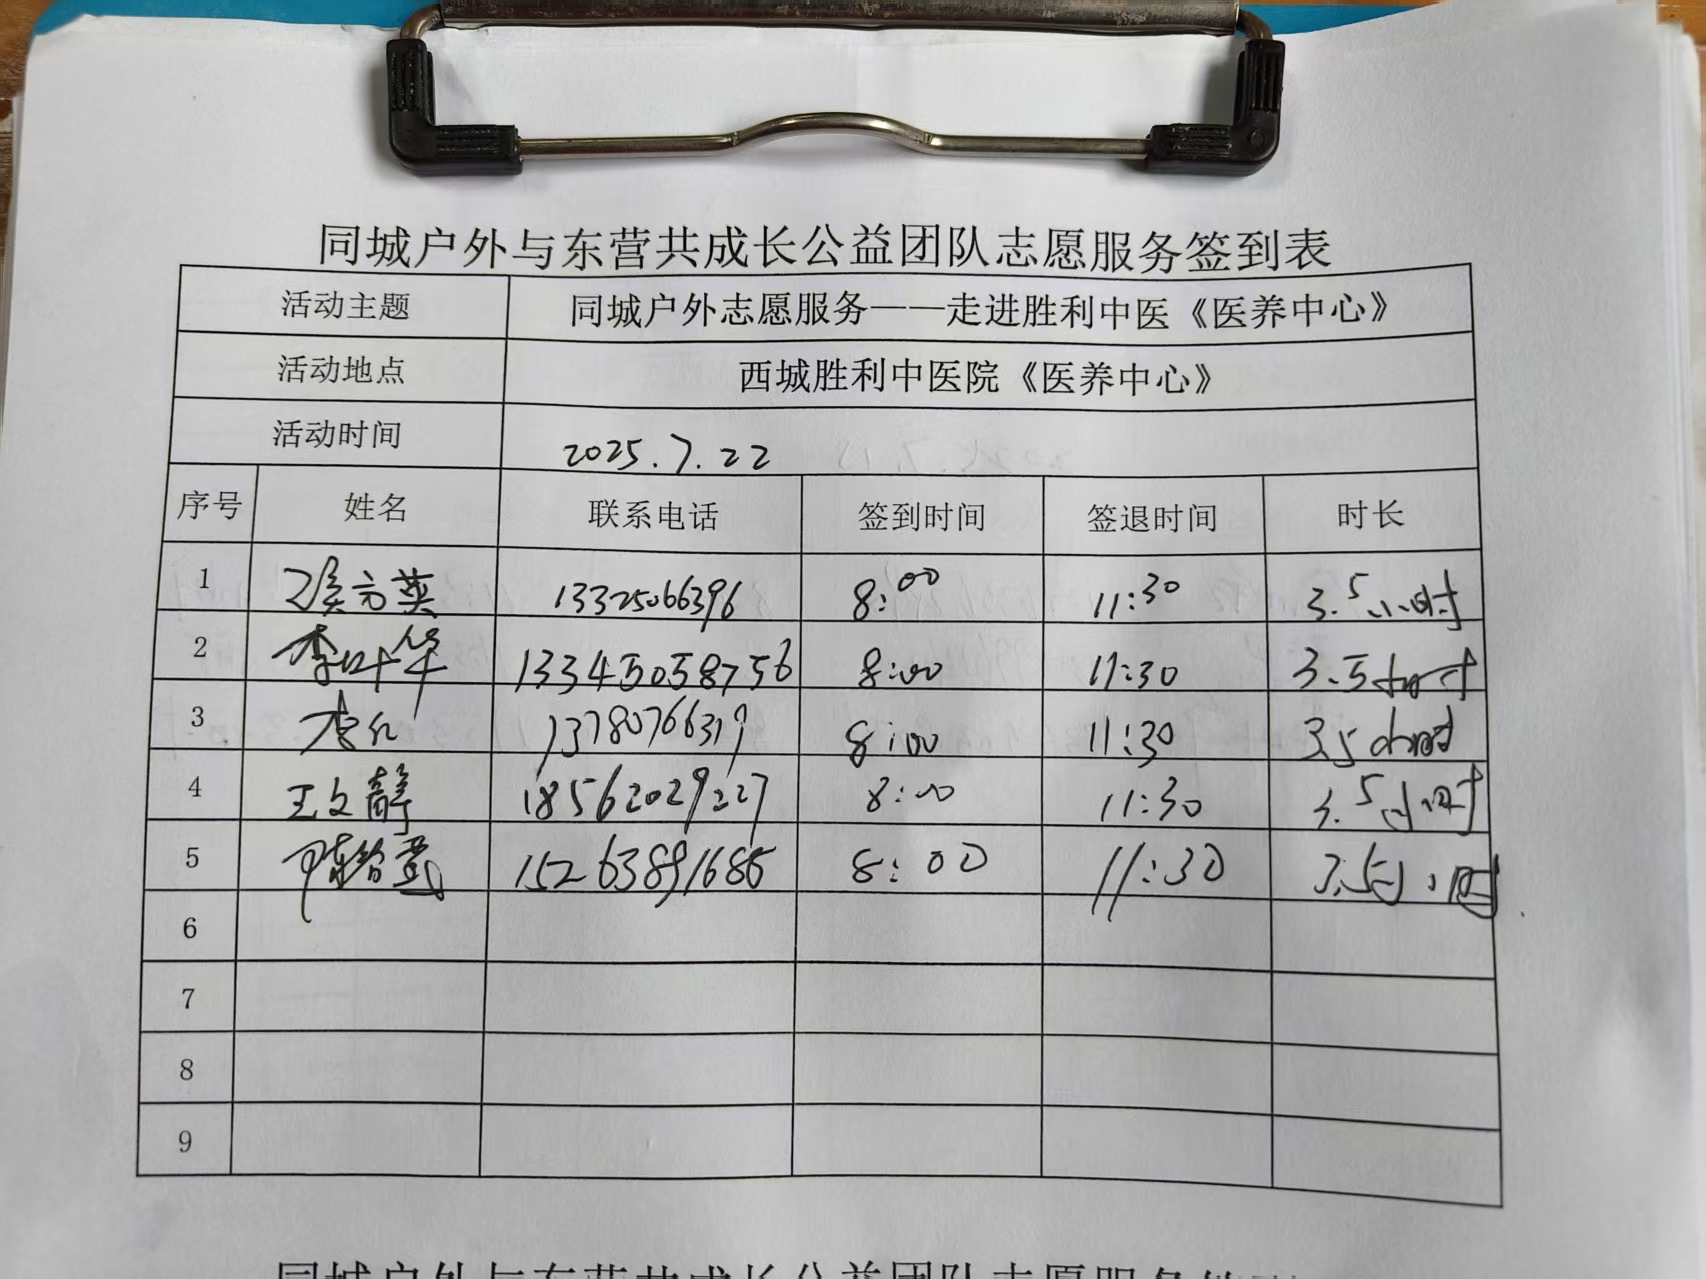 同城户外与东营共成长公益团队志愿服务签到表
活动主题 同城户外志愿服务——走进胜利中医《医养中心》
活动地点 西城胜利中医院《医养中心》
活动时间 2025.7.22
序号 姓名 联系电话 签到时间 签退时间 时长
1 13325066396 8:00 11:30 3.5小时
2 李叶华 13345058756 8:00 11:30 3.5小时
3 李红 13780766319 8:00 11:30 3.5小时
4 王文静 18562029227 8:00 11:30 3.5小时
5 15263891686 8:00 11:30 3.5小时
6
7
8
9
同城户外与东营共成长公益团队志愿服务签到表